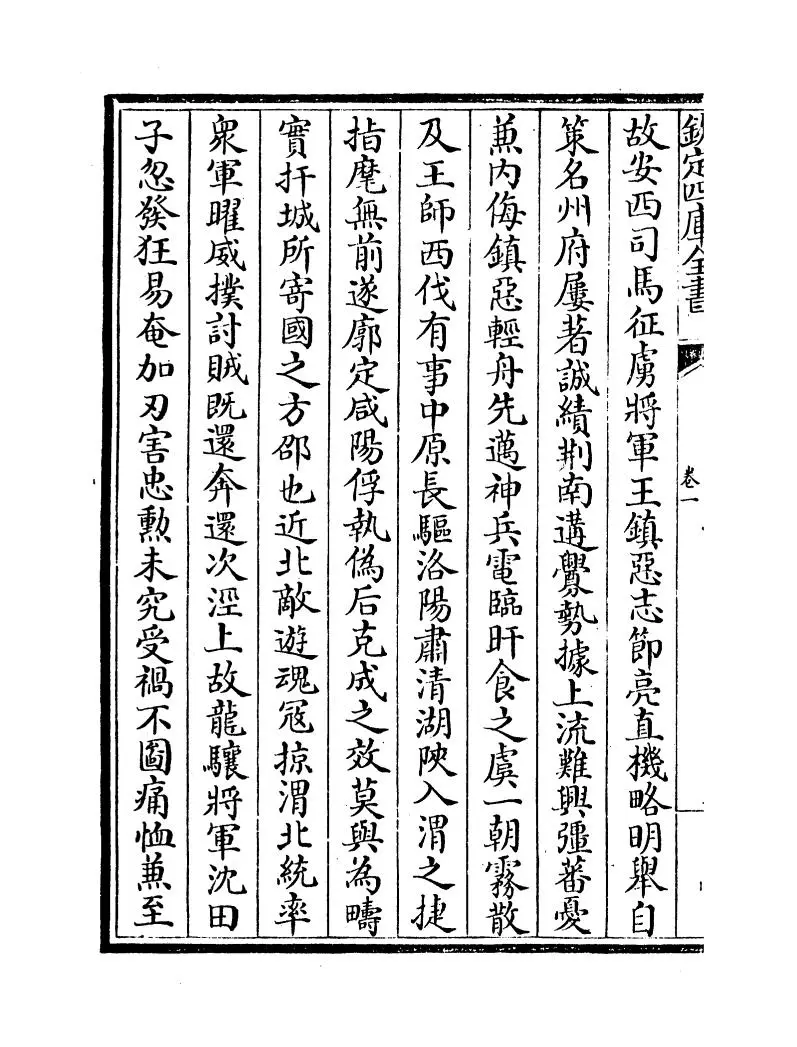 欽定四庫全書
卷一
故安西司馬征虜將軍王鎮惡志節亮直機略明舉自
策名州府屢著誠績荆南遘釁勢據上流難興彊蕃憂
兼内侮鎮惡輕舟先邁神兵電臨旰食之虞一朝霧散
及王師西伐有事中原長驅洛陽肅清湖陜入渭之捷
指麾無前遂廓定咸陽俘執偽后克成之效莫與為疇
實扞城所寄國之方邵也近北敵遊魂冦掠渭北統率
衆軍曜威撲討賊既還奔還次涇上故龍驤將軍沈田
子忽發狂易奄加刃害忠勲未究受禍不圖痛恤兼至